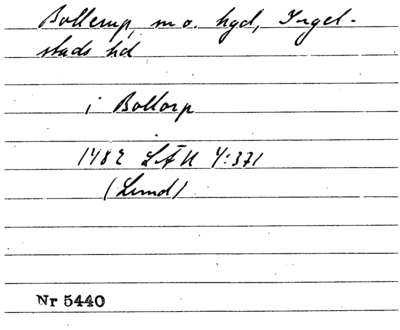 Bollerup, m o. hgd, Ingel-
stads hd
i Bollorp
1482 LÄU 4:371
(Lund)
Nr 5440